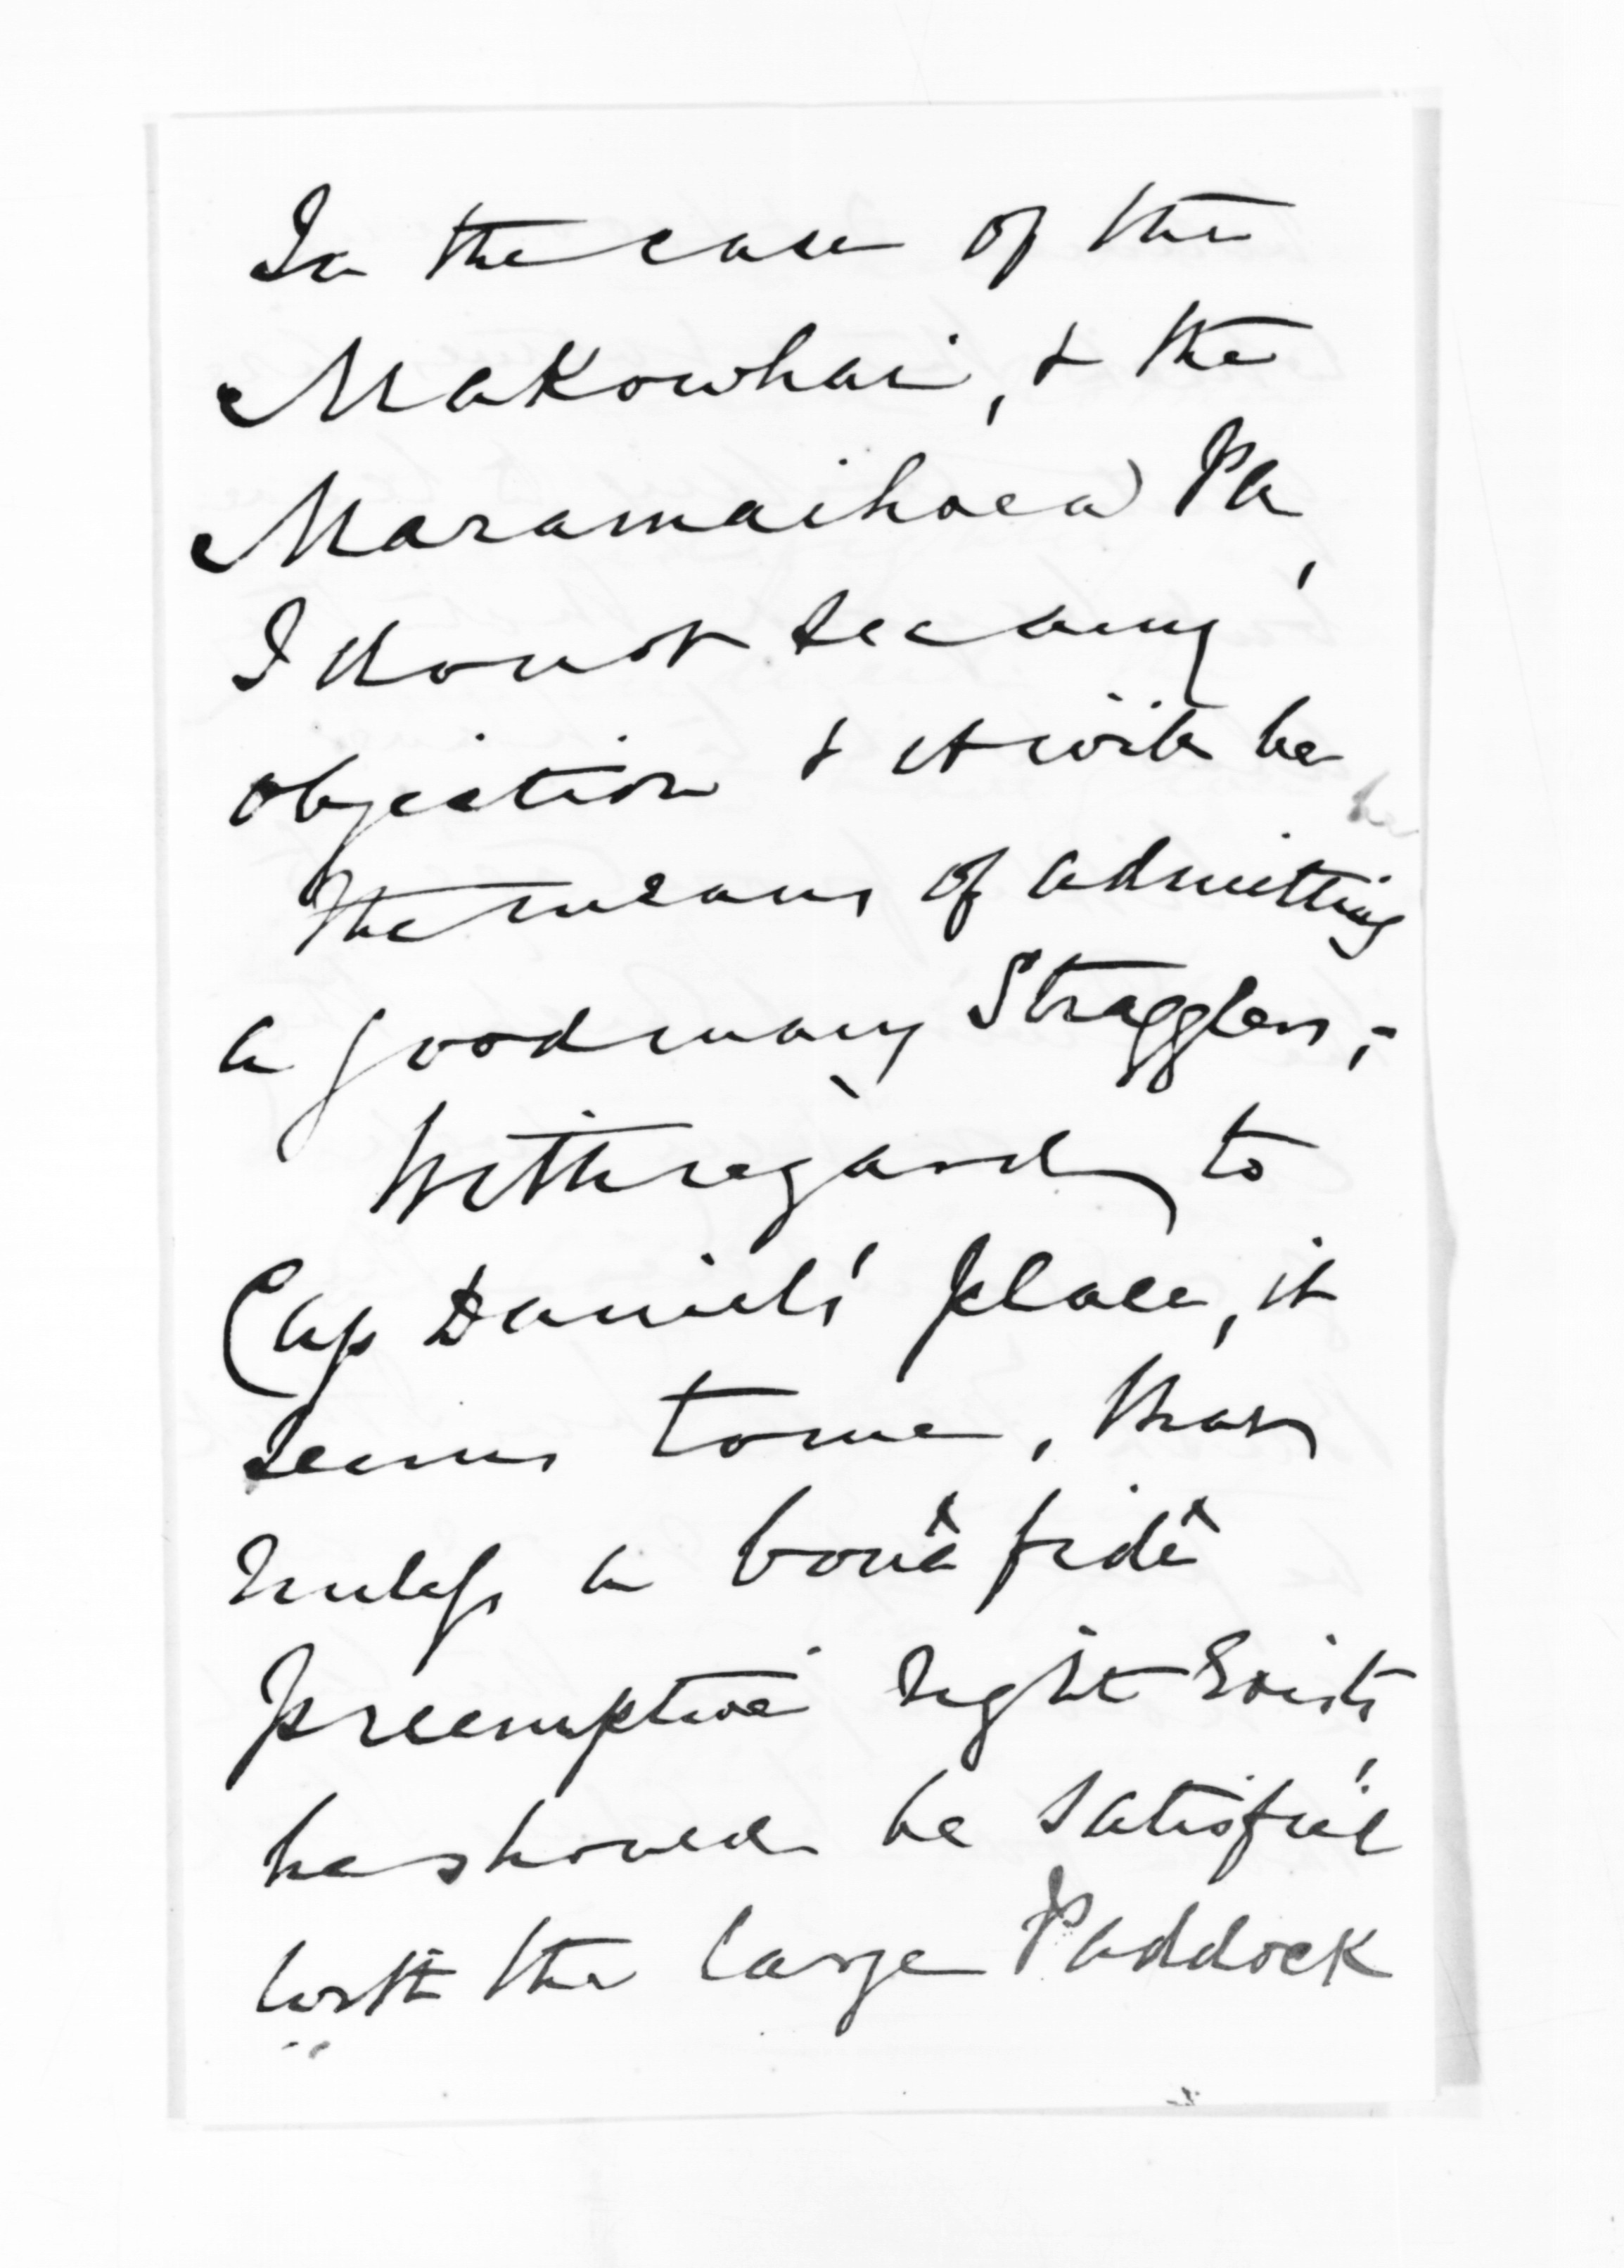 In the case of the
Makowhai, & the
Maramaihoea Pa,
I do not see any
objection & it will be
the means of admitting
a good many Stragglers,-
With regard to
Cap Daniels' place, it
seems to me, that
unless a bonâ fidê
preemptive right Exists
he should be satisfied
with the large Paddock